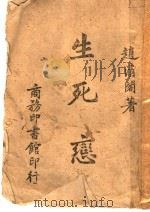 趙清閣著
生死戀
商務印書館印行